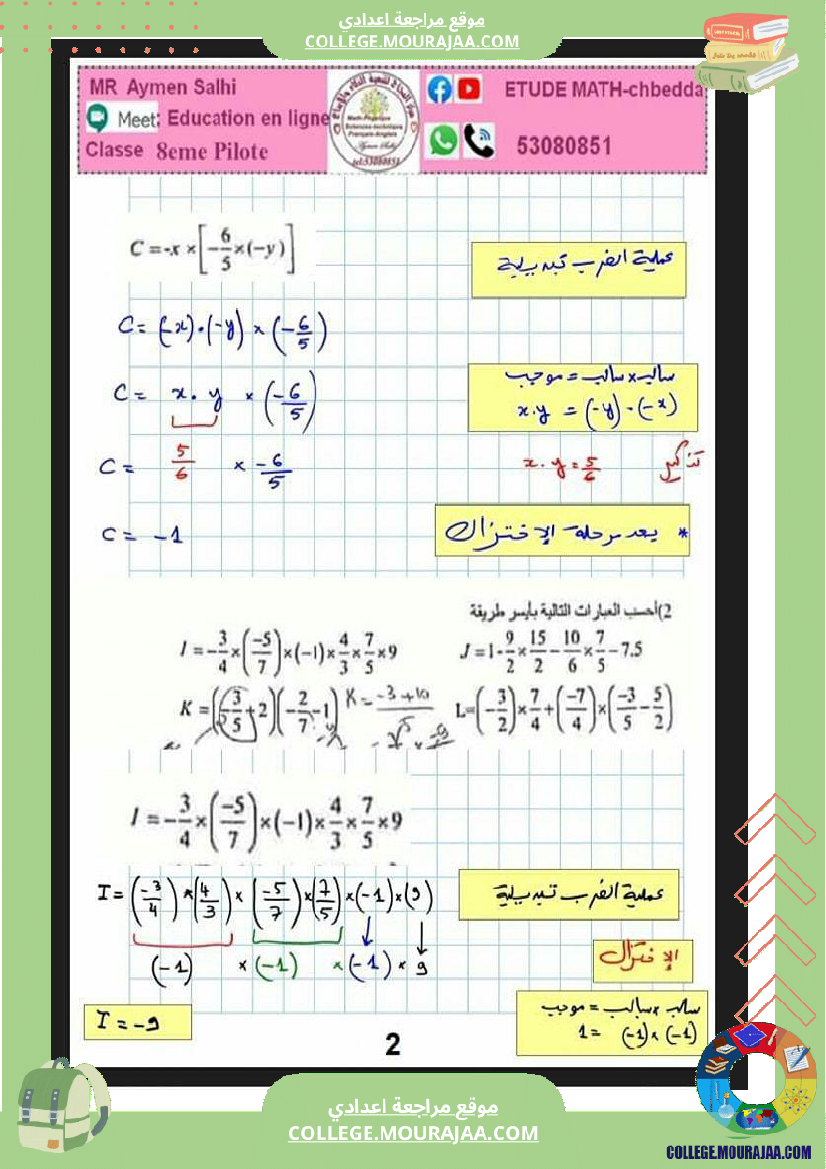 موقع مراجعة اعدادي
COLLEGE.MOURAJAA.COM
MR Aymen Salhi
Meet: Education en ligne
Classe 8eme Pilote
ETUDE MATH-chbedda
53080851
C = -x × [-6/5 × (-y)]
عملية الضرب تبديلية
C = (-x) · (-y) × (-6/5)
سالب × سالب = موجب
C = x . y × (-6/5)
x.y = (-y) · (-x)
C = 5/6 × -6/5
x . y = 5/6 تذكير
C = -1
* بعد مرحلة الإختزال
2)أحسب العبارات التالية بأيسر طريقة
I = -3/4 × (-5/7) × (-1) × 4/3 × 7/5 × 9
J = 1 - 9/2 × 15/2 - 10/6 × 7/5 - 7.5
K = (-3/5 + 2)(-2/7 - 1)
K = -3 + 10
L = (-3/2) × 7/4 + (-7/4) × (-3/5 - 5/2)
I = -3/4 × (-5/7) × (-1) × 4/3 × 7/5 × 9
I = (-3/4) × (4/3) × (-5/7) × (7/5) × (-1) × (9)
عملية الضرب تبديلية
(-1) × (-1) × (-1) × 9
الإختزال
I = -9
سالب × سالب = موجب
1 = (-1) × (-1)
2
موقع مراجعة اعدادي
COLLEGE.MOURAJAA.COM
COLLEGE.MOURAJAA.COM